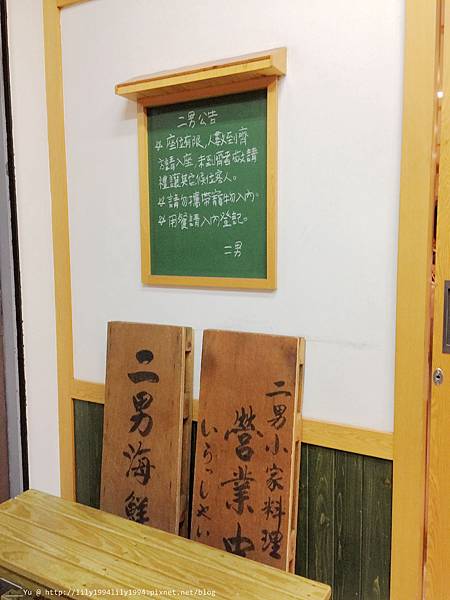 二男公告
☆座位有限,人數到齊
方請入座,未到齊者敬請
禮讓其它候位客人。
☆請勿攜帶寵物入內。
☆用餐請入內登記。
二男
二男海鮮
二男小家料理
營業中
いらっしゃい
Yu @ http://lily1994lily1994.pixnet.net/blog